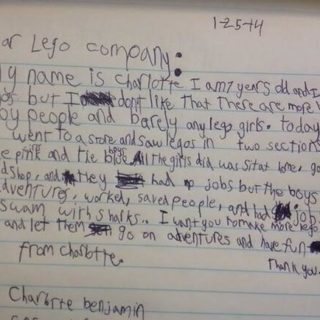 1-25-14
ar Lego company:
y name is charlotte I am 7 years old and I
os but I don't like that there are more
oy people and barely any lego girls. today
went to a store and saw legos in two section
e pink and the blue. All the girls did was sit at home, go
d shop, and they had no jobs but the boys
dventures, worked, saved people, and had jobs
swam with sharks. I want you to make more lego
and let them go on adventures and have fun
Thank you.
from charlotte.
Charlotte benjamin